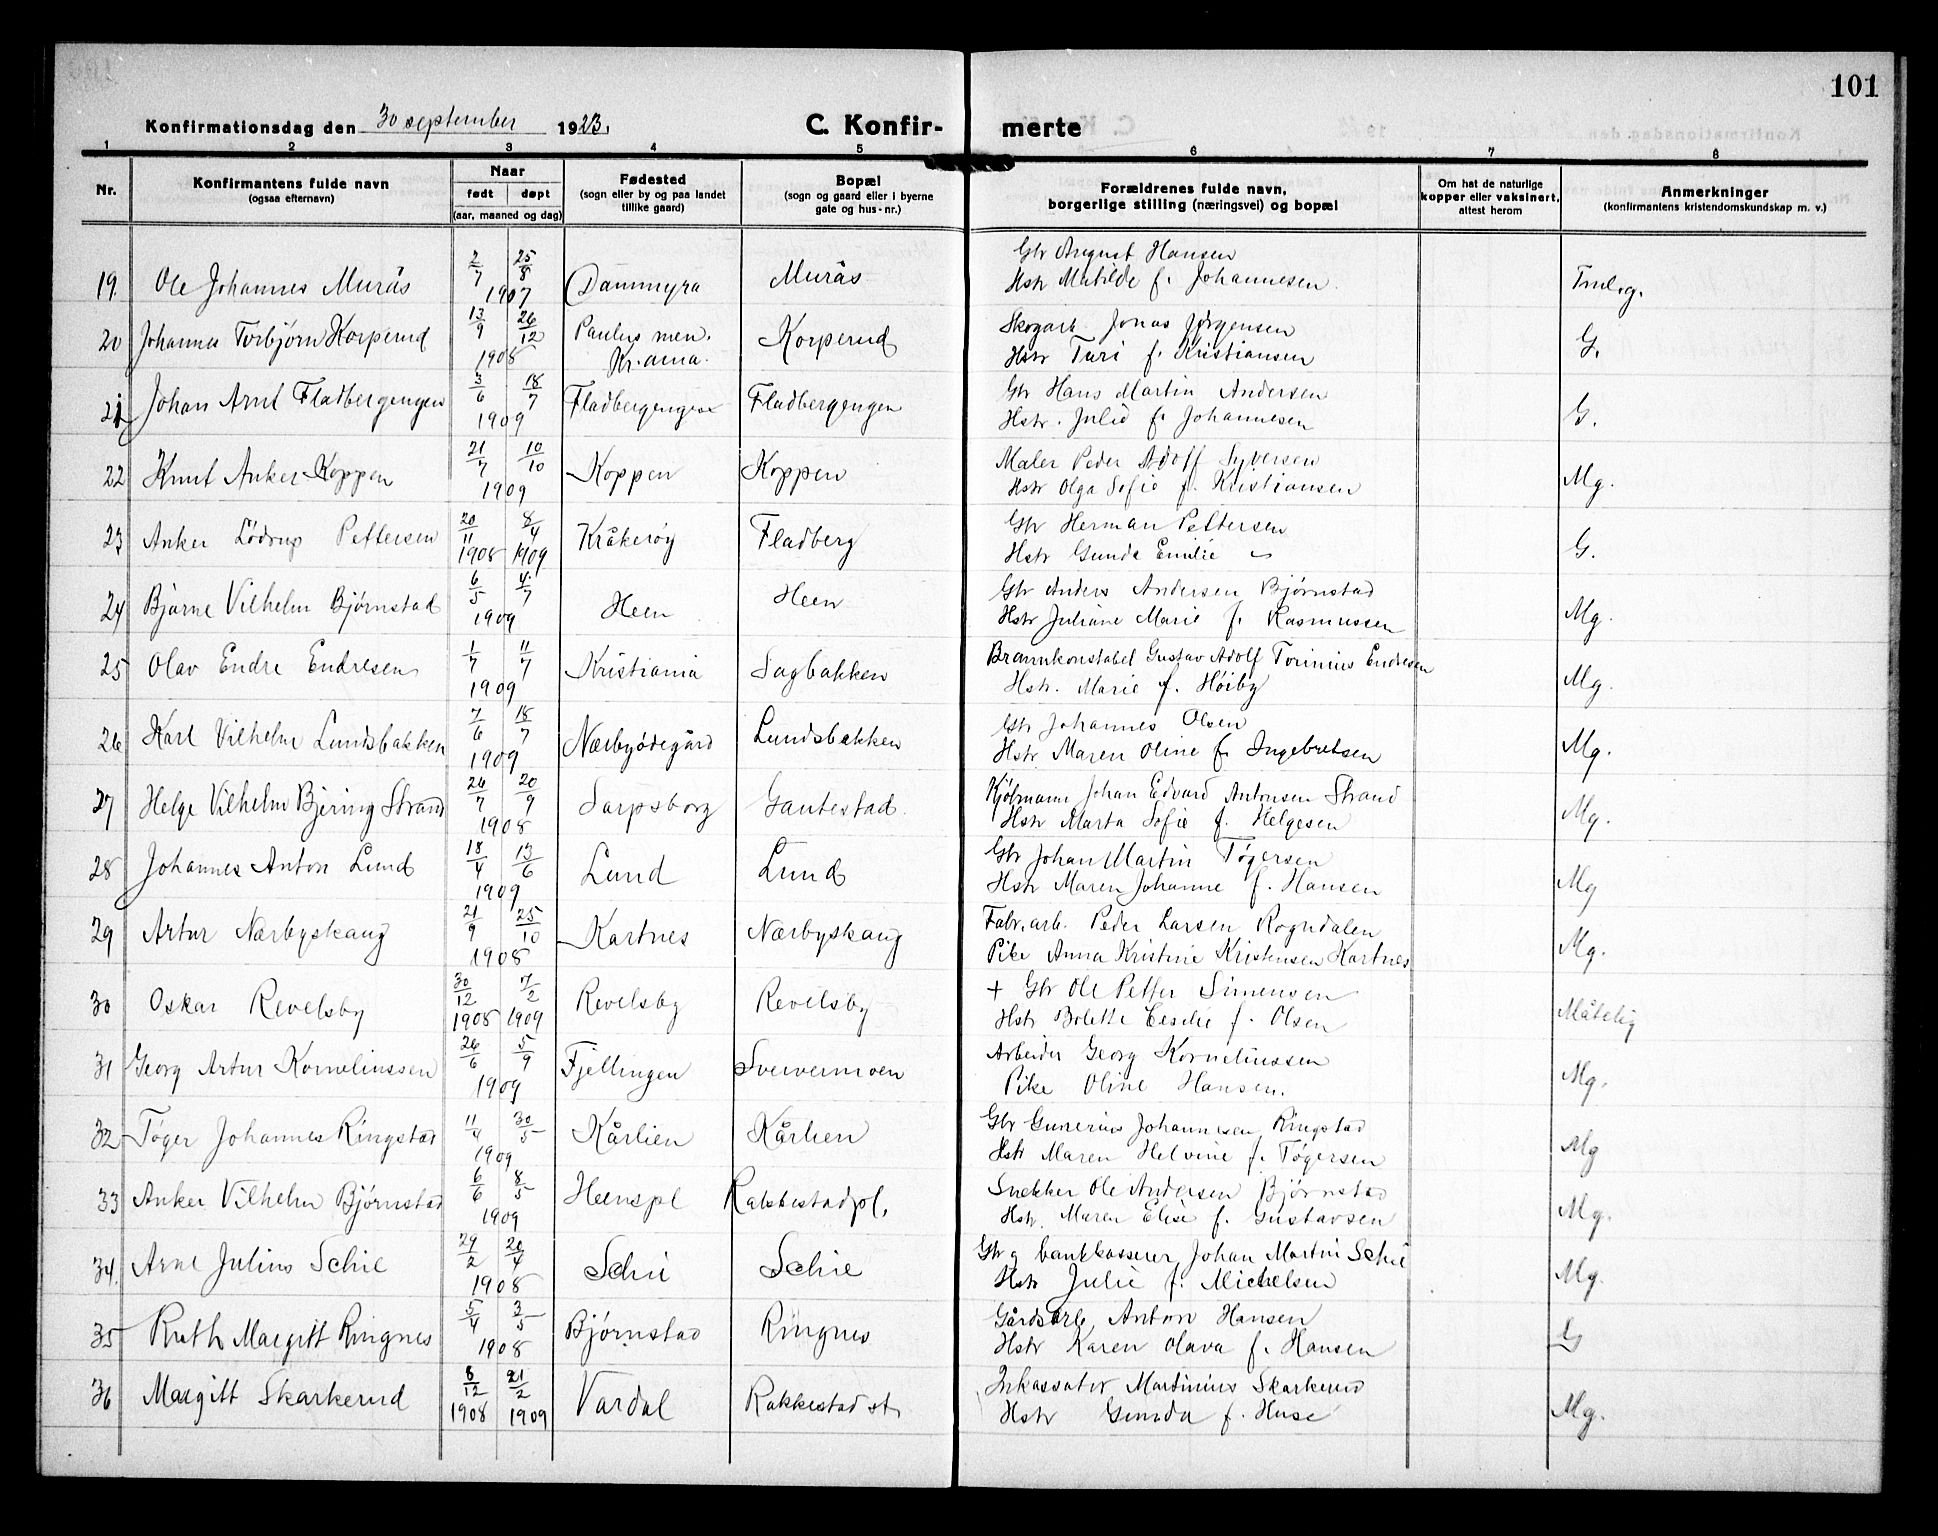 101
Konfirmationsdag den 30 september 1923.
C. Konfir- merte
1 2 3 4 5 6 7 8
Nr. Konfirmantens fulde navn (ogsaa efternavn) Naar født døpt (aar, maaned og dag) Fødested (sogn eller by og paa landet tillike gaard) Bopæl (sogn og gaard eller i byerne gate og hus-nr.) Forældrenes fulde navn, borgerlige stilling (næringsvei) og bopæl Om hat de naturlige kopper eller vaksinert, attest herom Anmerkninger (konfirmantens kristendomskundskap m. v.)
19. Ole Johannes Murås 2/7 25/8 1907 Dammyra Murås Gbr August Hansen
Hstr Matilde f. Johannesen
20 Johannes Torbjørn Korperud 13/9 26/12 1908 Paulus men. Kr.ania. Korperud Skogarb. Jonas Jørgensen G.
Hstr Turi f. Kristiansen
21 Johan Arnt Fladbergengen 3/6 18/7 1909 Fladbergengen Fladbergengen Gbr Hans Martin Andersen G.
Hstr. Julie f. Johannesen
22 Knut Anker Koppen 21/7 10/10 1909 Koppen Koppen Maler Peder Adolf Syversen Mg.
Hstr Olga Sofie f. Kristiansen
23 Anker Lödrup Pettersen 20/11 1908 8/4 1909 Kråkerøy Fladberg Gbr Herman Pettersen G.
Hstr Gunda Emilie
24 Bjarne Vilhelm Bjørnstad 6/5 4/7 1909 Heen Heen Gbr Anders Andersen Bjørnstad Mg.
Hstr Juliane Marie f. Rasmussen
25 Olav Endre Endresen 1/7 11/7 1909 Kristiania Sagbakken Brannkonstabel Gustav Adolf Torinius Endresen Mg.
Hstr. Marie f. Høiby
26 Karl Vilhelm Lundsbakken 7/6 18/7 1909 Nærbyødegård Lundsbakken Gbr Johannes Olsen Mg.
Hstr Maren Oline f. Ingebretsen
27 Helge Vilhelm Bjering Strand 26/7 20/9 1908 Sarpsborg Gautestad Kjøbmann Johan Edvard Antonsen Strand Mg.
Hstr Marta Sofie f. Helgesen
28 Johannes Anton Lund 18/4 13/6 1909 Lund Lund Gbr Johan Martin Tøgersen Mg
Hstr Maren Johanne f. Hansen
29 Artur Nærbyskaug 21/9 25/10 1908 Kartnes Nærbyskaug Fabr.arb. Peder Larsen Rogndalen Mg.
Pike Anna Kristine Kristensen Kartnes
30 Oskar Revelsby 30/12 1908 7/2 1909 Revelsby Revelsby + Gbr Ole Petter Simensen Måtelig
Hstr Bolette Cecilie f. Olsen
31 Georg Artur Korneliussen 26/6 5/9 1909 Fjellingen Sververmoen Arbeider Georg Korneliussen Mg.
Pike Oline Hansen.
32 Tøger Johannes Ringstad 11/4 30/5 1909 Kårlien Kårlien Gbr Gunerius Johannesen Ringstad Mg
Hstr Maren Helvine f. Tøgersen
33 Anker Vilhelm Bjørnstad 6/6 8/5 1909 Heenspl Rakkestadpl. Snekker Ole Andersen Bjørnstad Mg.
Hstr. Maren Elise f. Gustavsen
34. Arne Julius Schie 29/2 20/4 1908 Schie Schie Gbr g bankkasserer Johan Martin Schie Mg.
Hstr Julie f. Michelsen
35 Ruth Margitt Ringnes 5/4 3/5 1908 Bjørnstad Ringnes Gårdsarb. Anton Hansen G
Hstr Karen Olava f. Hansen
36 Margitt Skarkerud 8/12 1908 21/2 1909 Vardal Rakkestad st. Inkassator Martinius Skarkerud Mg.
Hstr Gunda f. Huse